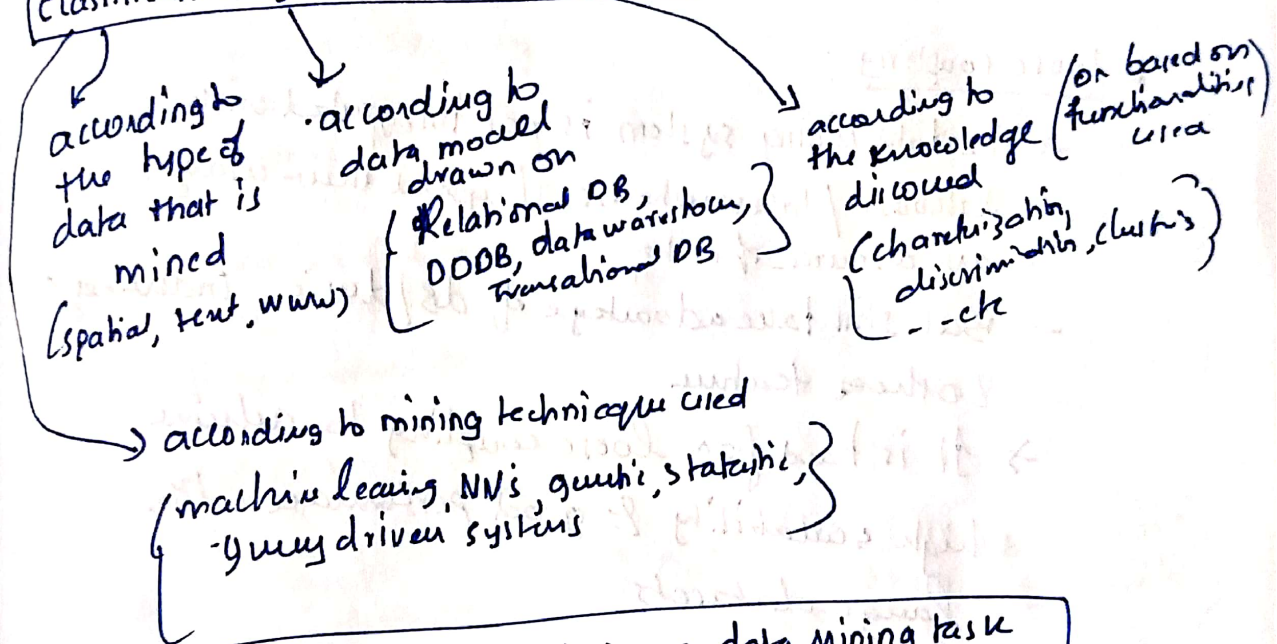 according to
the type of
data that is
mined
(spatial, text, www)
. according to
data model
drawn on
(Relational DB,
OODB, data warehouse,
Transational DB)
according to
the knowledge
discovered
(or based on
functionalities
used
(charcterization,
discrimination, clusters)
- - etc
→ according to mining technique used
(machine learning, NN's, genetic, statastic,
- query driven systems
data mining task